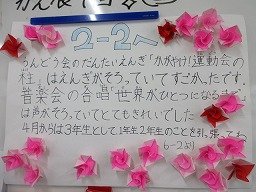 2-2へ
うんどう会のだんたいえんぎ「かがやけ!運動会の
柱」はえんぎがそろっていてすごかったです。
音楽会の合唱「世界がひとつになるまで」
は声がそろっていてとてもきれいでした
4月からは3年生として1年生2年生のことを引っ張ってね
6-2より